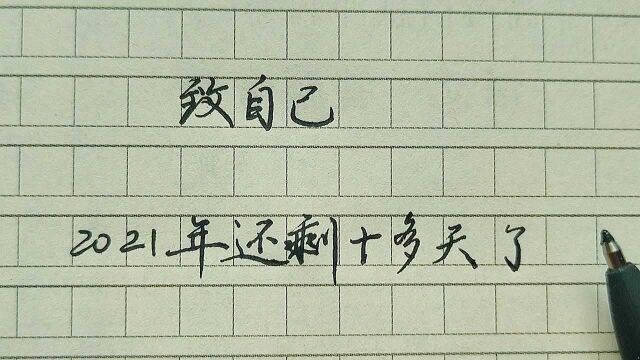 致自己
2021年还剩十多天了